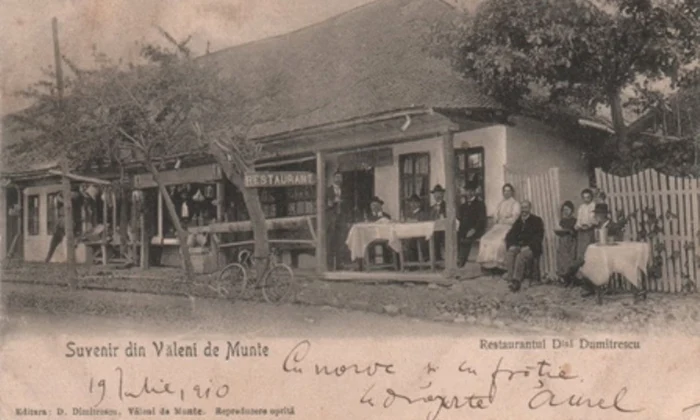 RESTAURANT
Suvenir din Văleni de Munte
Restaurantul D-lui Dumitrescu
Cu noroc și cu frăție
19 Iulie, 910
dragoste Aurel
Editura: D. Dimitrescu, Văleni de Munte. Reproducere oprită